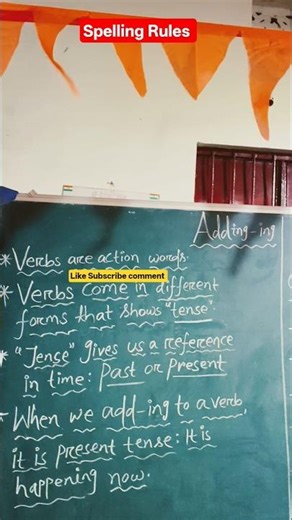 Spelling Rules
Adding-ing
* Verbs are action words.
Like Subscribe comment
* Verbs come in different
forms that shows "tense".
* "Tense" gives us a reference
in time: Past or Present
- When we add-ing to a verb,
it is present tense: It is
happening now.